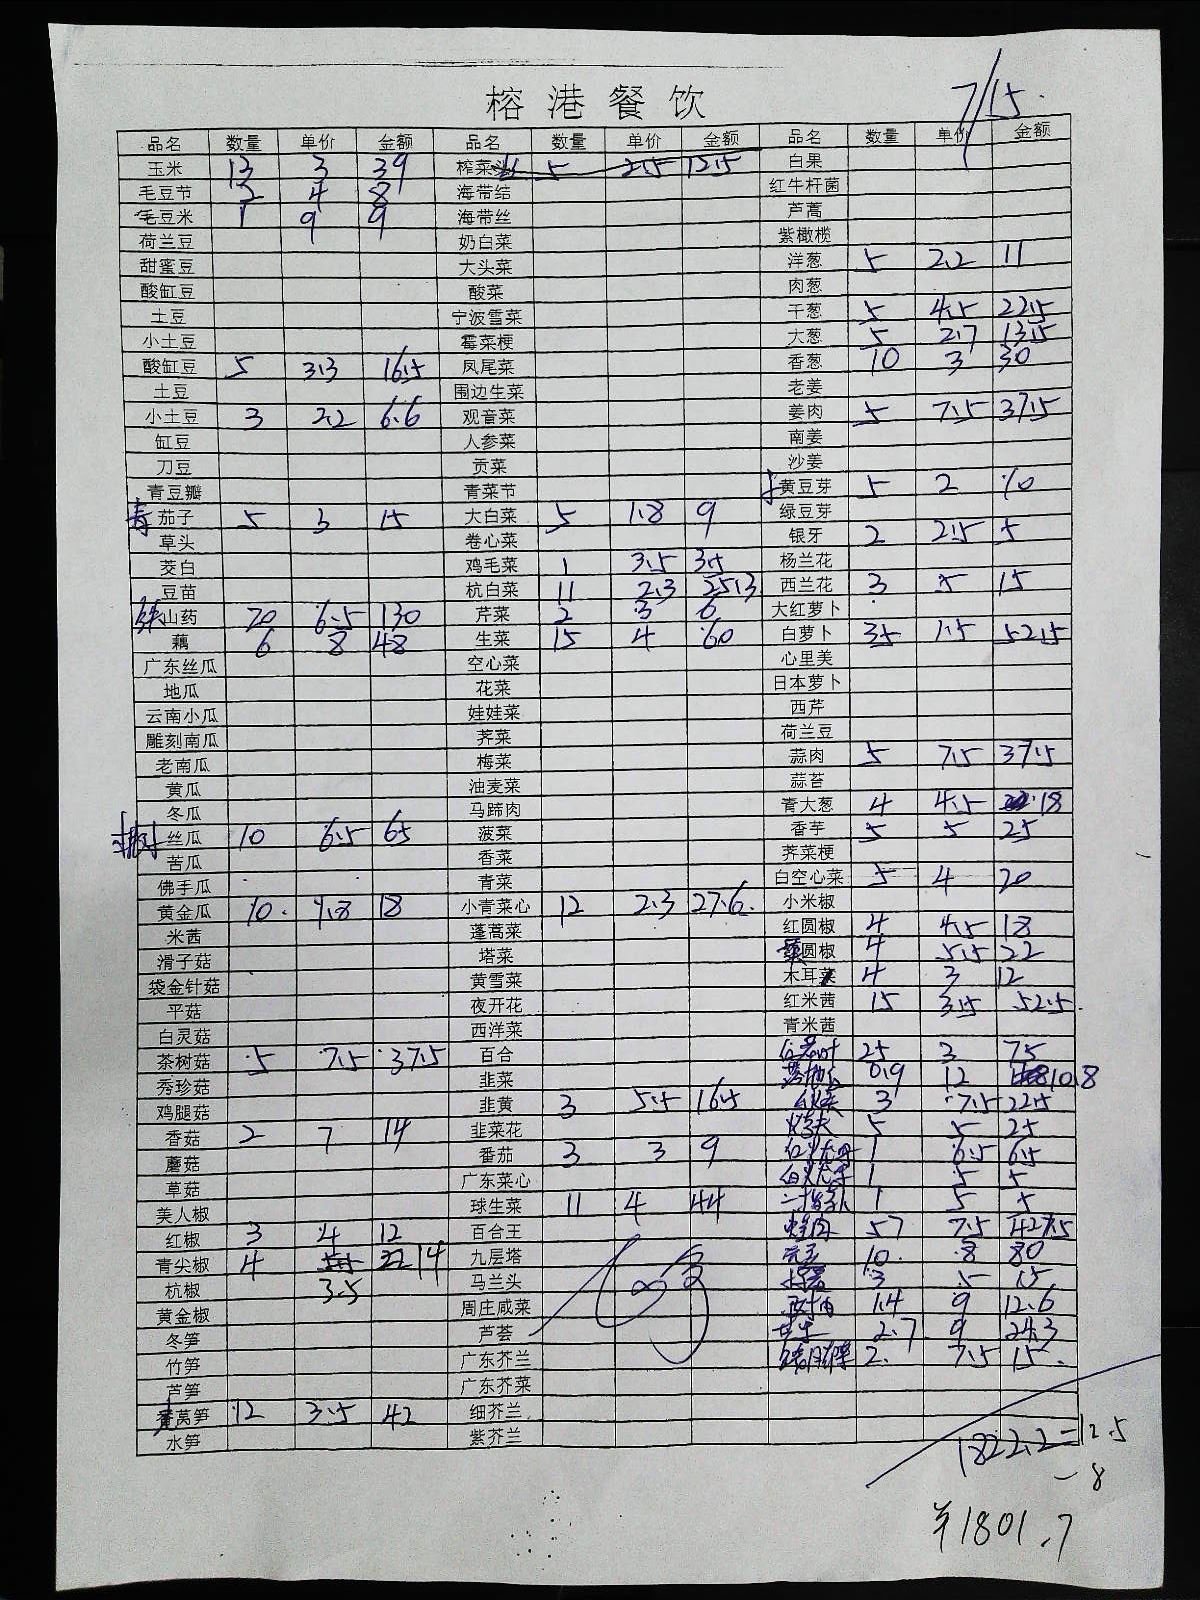 榕港餐饮
7/15.
品名 数量 单价 金额 品名 数量 单价 金额 品名 数量 单价 金额
玉米 13 3 39 榨菜头 5 2.5 12.5 白果
毛豆节 2 4 8 海带结 红牛杆菌
毛豆米 1 9 9 海带丝 芦蒿
荷兰豆 奶白菜 紫橄榄
甜蜜豆 大头菜 洋葱 5 2.2 11
酸缸豆 酸菜 肉葱
土豆 宁波雪菜 干葱 5 4.5 22.5
小土豆 霉菜梗 大葱 5 2.7 13.5
酸缸豆 5 3.3 16.5 凤尾菜 香葱 10 3 30
土豆 围边生菜 老姜
小土豆 3 2.2 6.6 观音菜 姜肉 5 7.5 37.5
缸豆 人参菜 南姜
刀豆 贡菜 沙姜
青豆瓣 青菜节 黄豆芽 5 2 10
青茄子 5 3 15 大白菜 5 1.8 9 绿豆芽
草头 卷心菜 银牙 2 2.5 5
茭白 鸡毛菜 1 3.5 3.5 杨兰花
豆苗 杭白菜 11 2.3 25.3 西兰花 3 5 15
铁山药 20 6.5 130 芹菜 2 3 6 大红萝卜
藕 6 8 48 生菜 15 4 60 白萝卜 35 1.5 52.5
广东丝瓜 空心菜 心里美
地瓜 花菜 日本萝卜
云南小瓜 娃娃菜 西芹
雕刻南瓜 荠菜 荷兰豆
老南瓜 梅菜 蒜肉 5 7.5 37.5
黄瓜 油麦菜 蒜苔
冬瓜 马蹄肉 青大葱 4 4.5 18
丝瓜 10 6.5 65 菠菜 香芋 5 5 25
苦瓜 香菜 荠菜梗
佛手瓜 青菜 白空心菜 5 4 20
黄金瓜 10. 1.8 18 小青菜心 12 2.3 27.6 小米椒
米茜 蓬蒿菜 红圆椒 4 4.5 18
滑子菇 塔菜 圆椒 4 5.5 22
袋金针菇 黄雪菜 木耳菜 4 3 12
平菇 夜开花 红米茜 15 3.5 52.5
白灵菇 西洋菜 青米茜
茶树菇 5 7.5 37.5 百合 25 3 75
秀珍菇 韭菜 0.9 12 10.8
鸡腿菇 韭黄 3 5.5 16.5 3 7.5 22.5
香菇 2 7 14 韭菜花 5 5 25
蘑菇 番茄 3 3 9 1 6.5 6.5
草菇 广东菜心 1 5 5
美人椒 球生菜 11 4 44 1 5 5
红椒 3 4 12 百合王 57 7.5 427.5
青尖椒 4 14 九层塔 10 8 80
杭椒 3.5 马兰头 3 5 15
黄金椒 周庄咸菜 1.4 9 12.6
冬笋 芦荟 2.7 9 24.3
竹笋 广东芥兰 2. 7.5 15
芦笋 广东芥菜
莴笋 12 3.5 42 细芥兰
水笋 紫芥兰
1822.2-12.5
-8
¥1801.7